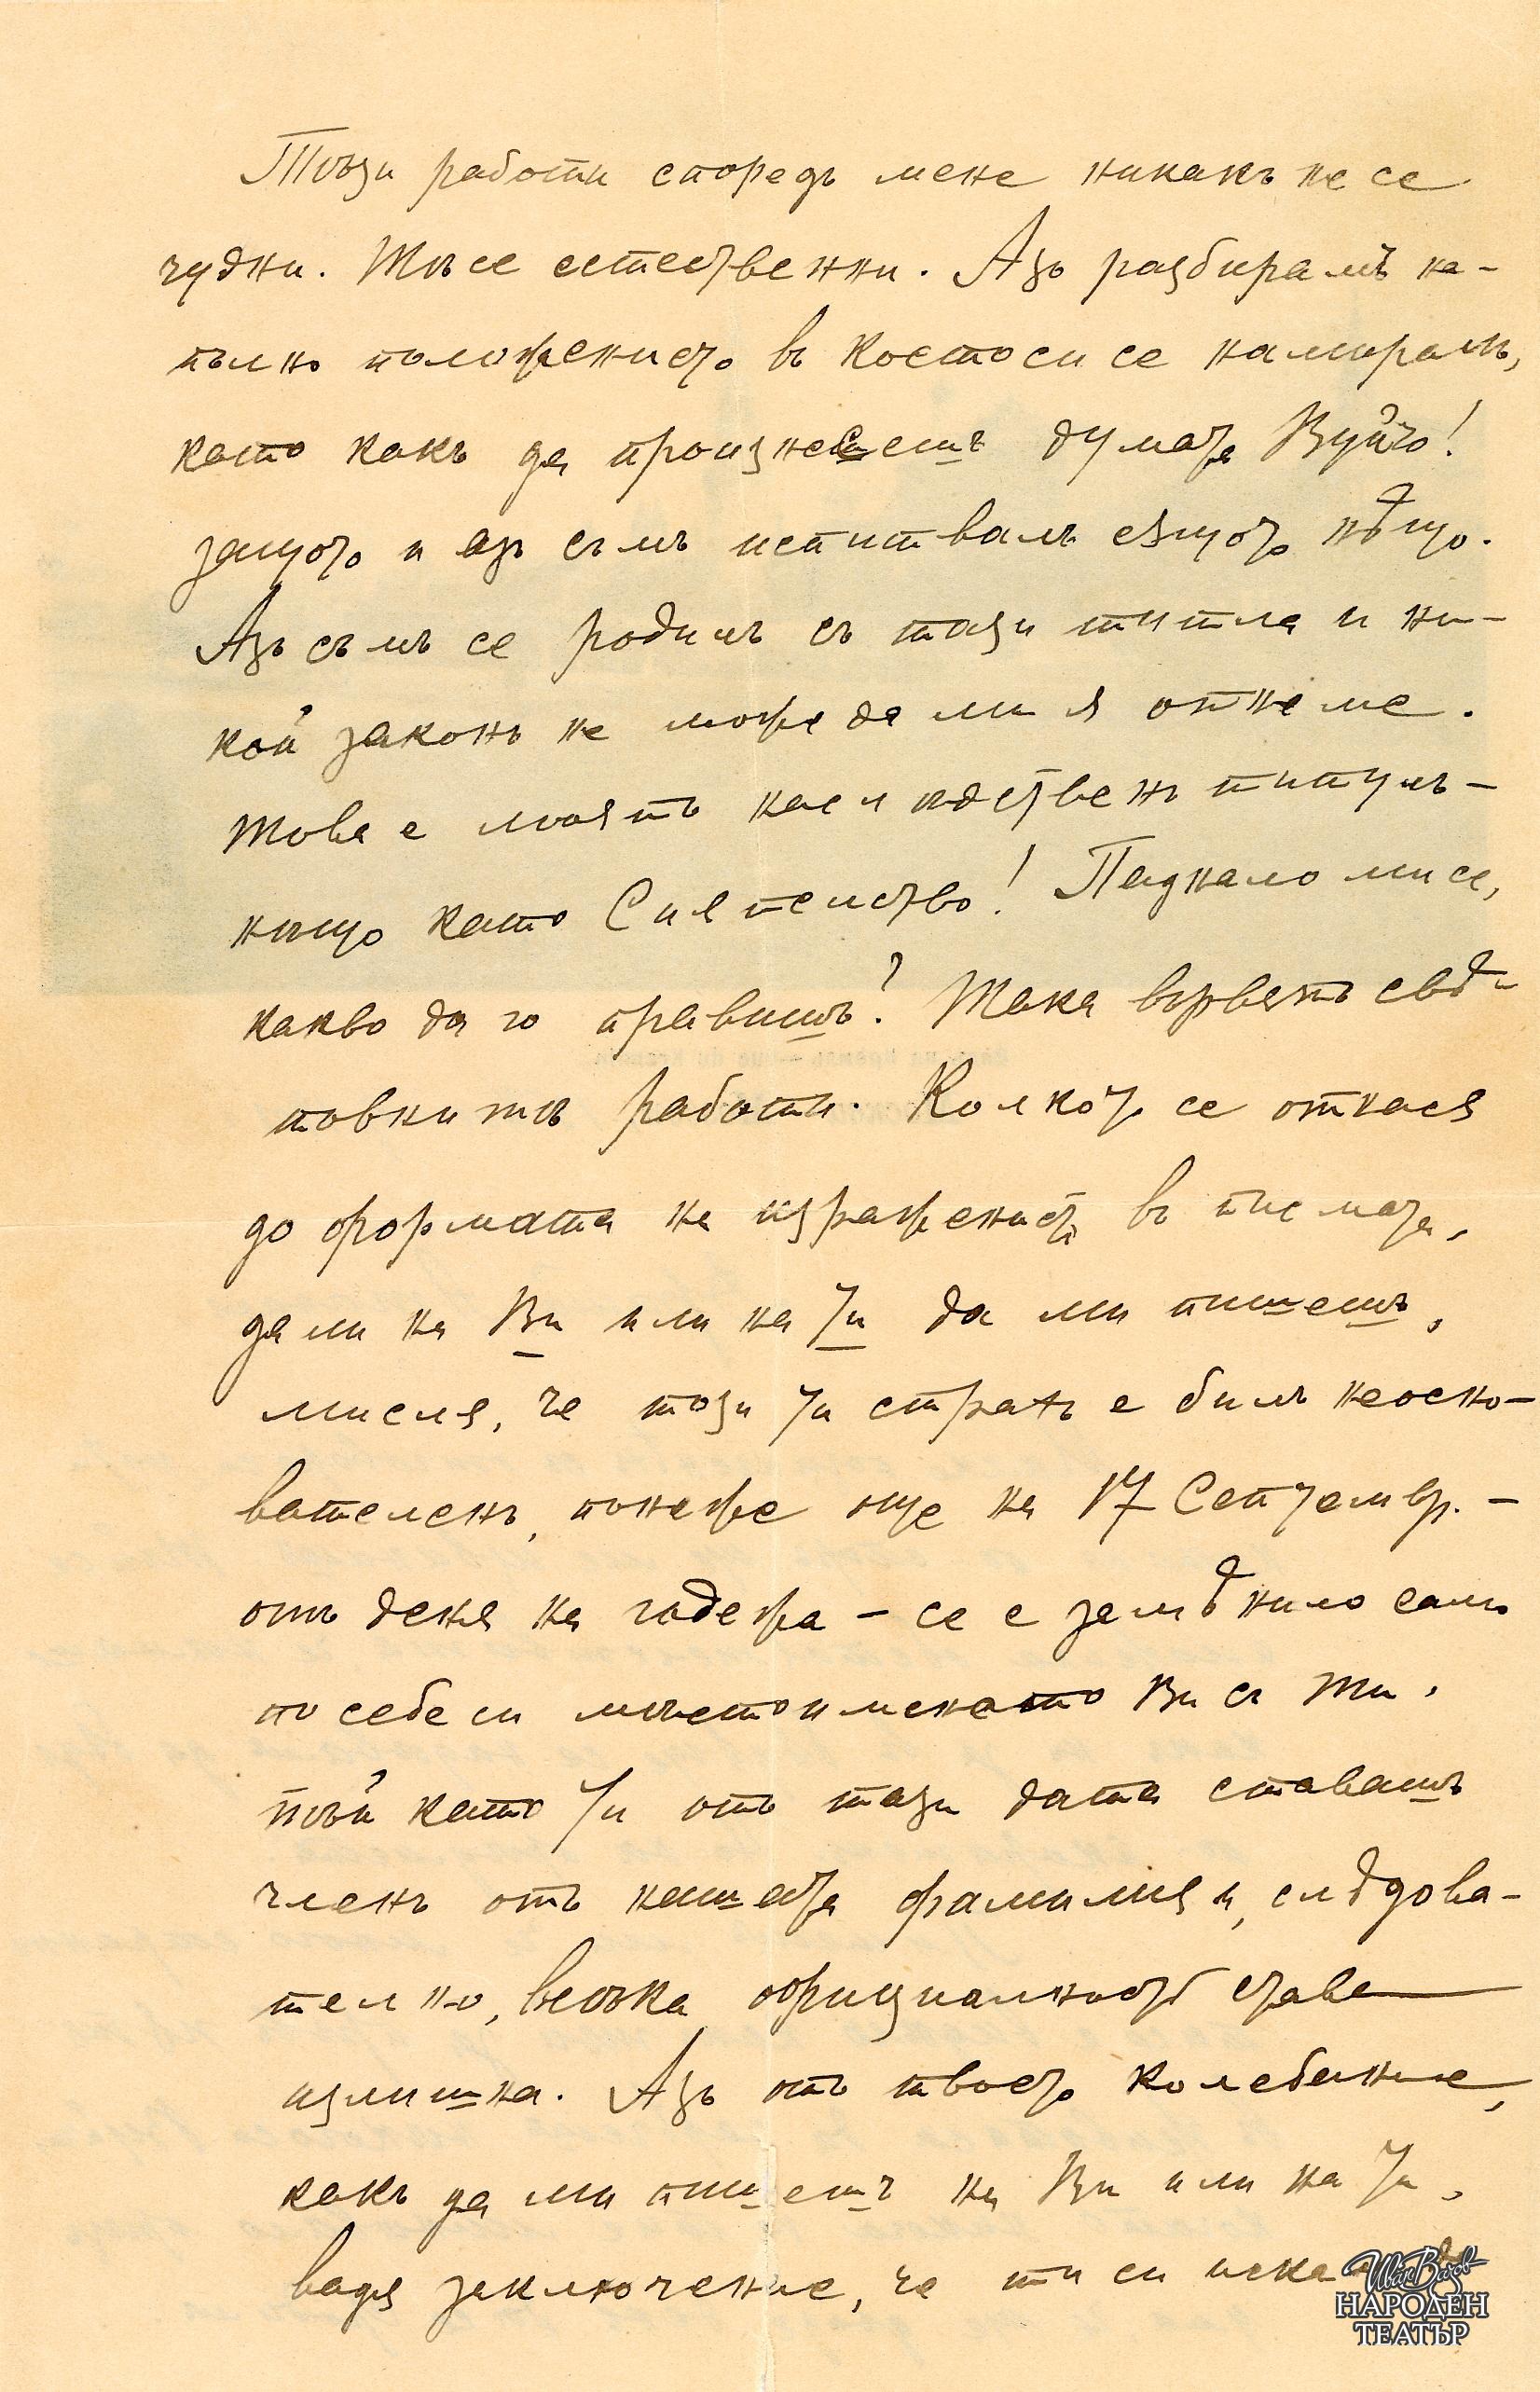 Тѣзи работи споредъ мене никакъ не се
чудни. Тѣ се естественни. Азъ разбирамъ на-
пълно положението въ което си се намиралъ,
като какъ да произнесешъ думата Вуйчо!
защото и азъ съмъ испитвалъ сѫщото нѣщо.
Азъ съмъ се родилъ съ тази титла и ни-
кой законъ не може да ми я отнеме.
Това е моятъ наслѣдственъ титулъ –
нѣщо като Сиятелство! Паднало ми се,
какво да го правишъ? Така вървятъ свѣ-
товнитѣ работи. Колкото се отнася
до формата на изражението въ писмата,
дали на Ви или на Ти да ми пишешъ,
мисля, че този ти страхъ е билъ неосно-
вателенъ, понеже още на 17 Септемвр. –
отъ деня на годежа – се е замѣнило само
по себе си мѣстоимението Ви съ Ти,
тъй като Ти отъ тази дата ставашъ
членъ отъ нашата фамилия и, слѣдова-
телно, всѣка официалность става
излишна. Азъ отъ твоето колебание,
какъ да ми пишешъ на Ви или на Ти,
вадя заключение, че ти си
Иван Вазов
НАРОДЕН
ТЕАТЪР